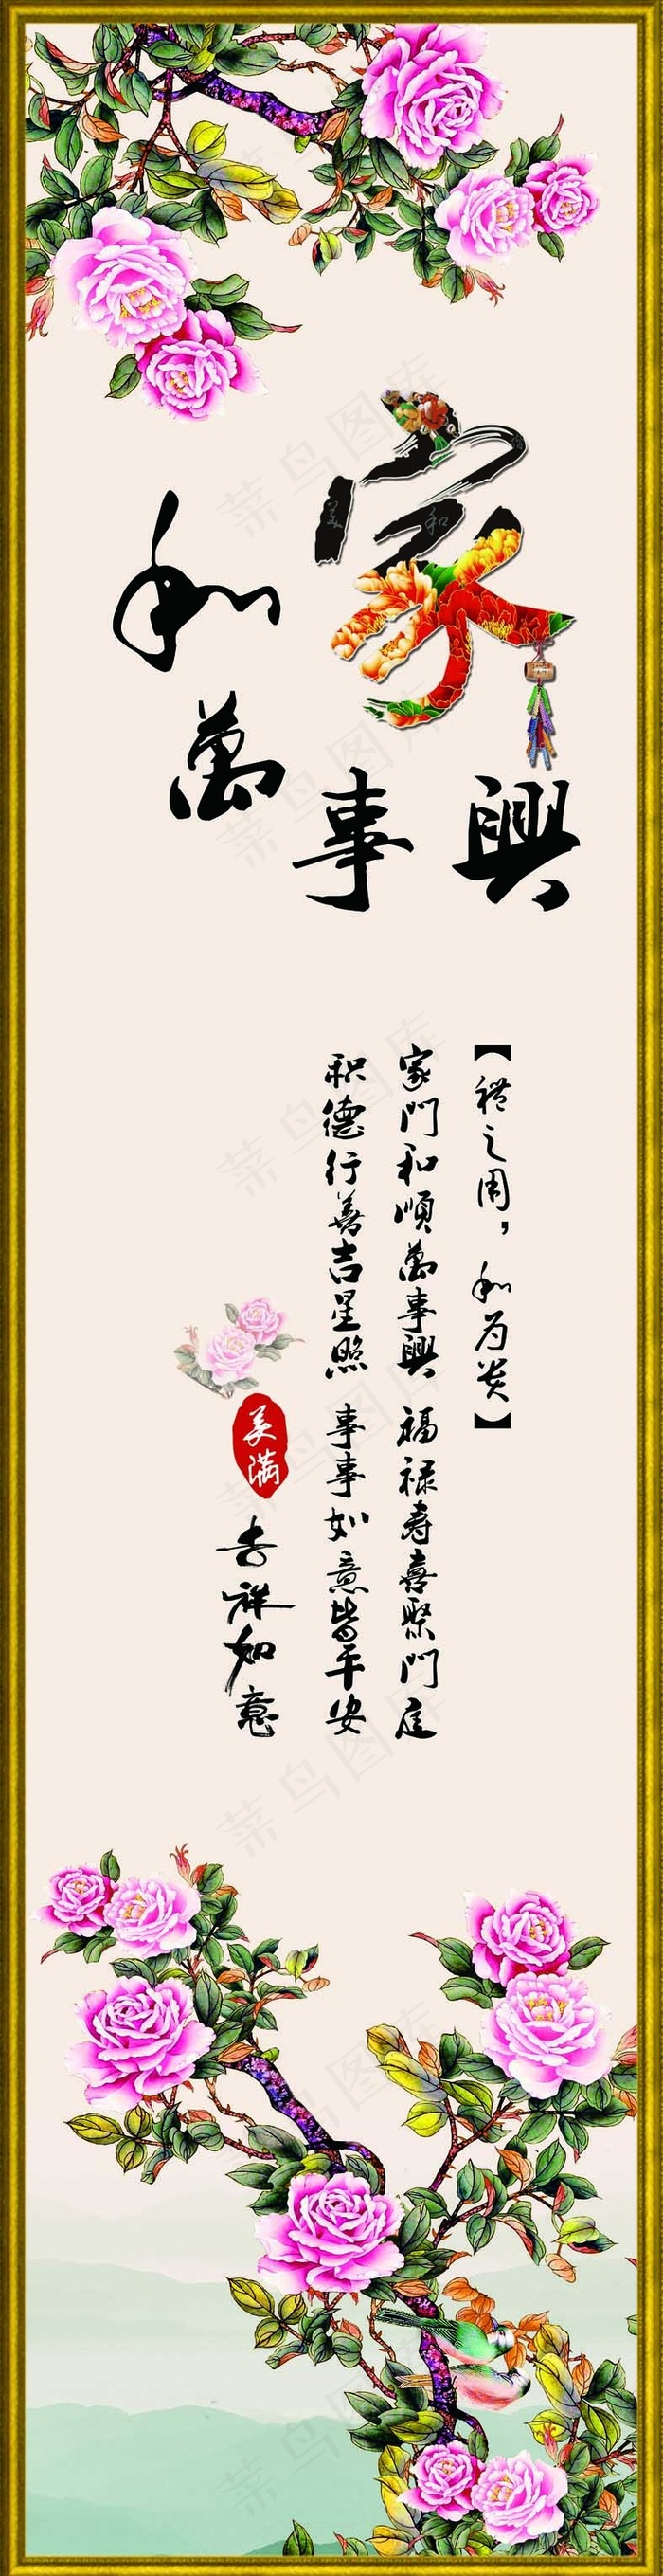 家
和
萬
事
興
【禮之用，和为贵】
家門和順萬事興 福禄寿喜聚門庭
积德行善吉星照 事事如意皆平安
美满
吉祥如意
菜鸟图库